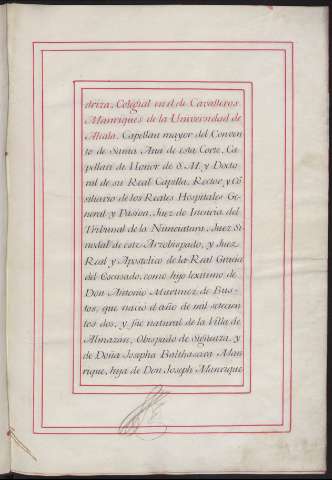 driza, Colegial en el de Cavalleros
Manriques de la Universidad de
Alcala, Capellan mayor del Conven-
to de Santa Ana de esta Corte, Ca-
pellan de Honor de S. M. y Docto-
ral de su Real Capilla, Rector y Cõ-
siliario de los Reales Hospitales Ge-
neral y Pasion, Juez de
Tribunal de la Nunciatura, Juez Si-
nodal de este Arzobispado, y Juez
Real y Apostolico de la Real Gracia
del Escusado, como hijo lexitimo de
Don Antonio Martinez de Bus-
tos, que naciò el año de mil setecien-
tos dos, y fuè natural de la Villa de
Almazàn, Obispado de Siguenza, y
de Doña Josepha Balthasara Man-
rique, hija de Don Joseph Manrique